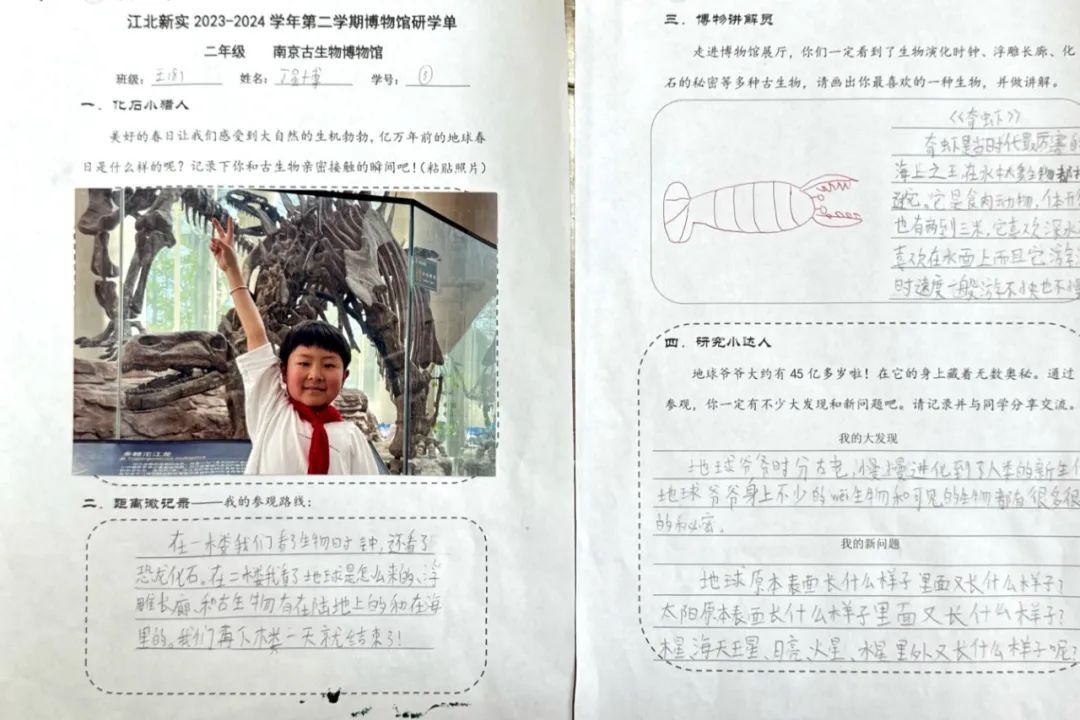 江北新实 2023-2024 学年第二学期博物馆研学单
二年级 南京古生物博物馆
班级： 姓名： 学号：
一．化石小猎人
美好的春日让我们感受到大自然的生机勃勃，亿万年前的地球春
日是什么样的呢？记录下你和古生物亲密接触的瞬间吧！(粘贴照片)
二．距离微记录——我的参观路线：
在一楼我们看了生物时钟，还看了
恐龙化石。在二楼我看了地球是怎么来的、浮
雕长廊、和古生物有在陆地上的和在海
里的。我们再下楼一天就结束了！
三．博物讲解员
走进博物馆展厅，你们一定看到了生物演化时钟、浮雕长廊、化
石的秘密等多种古生物，请画出你最喜欢的一种生物，并做讲解。
《奇虾》
奇虾是古时代最厉害的
海上之王,在水中大多生物都
它,它是食肉动物,体
也有两到三米,它喜欢深水
喜欢在水面上而且它游
时速度一般游不快也不慢
四．研究小达人
地球爷爷大约有 45 亿多岁啦！在它的身上藏着无数奥秘。通过
参观，你一定有不少大发现和新问题吧。请记录并与同学分享交流。
我的大发现
地球爷爷时分古老,慢慢进化到了人类的新生
地球爷爷身上不少的wēi生物和可见的生物都有很多很
的秘密。
我的新问题
地球原本表面长什么样子里面又长什么样子？
太阳原本表面长什么样子里面又长什么样子？
木星、海天王星、月亮、火星、水星里外又长什么样子呢？